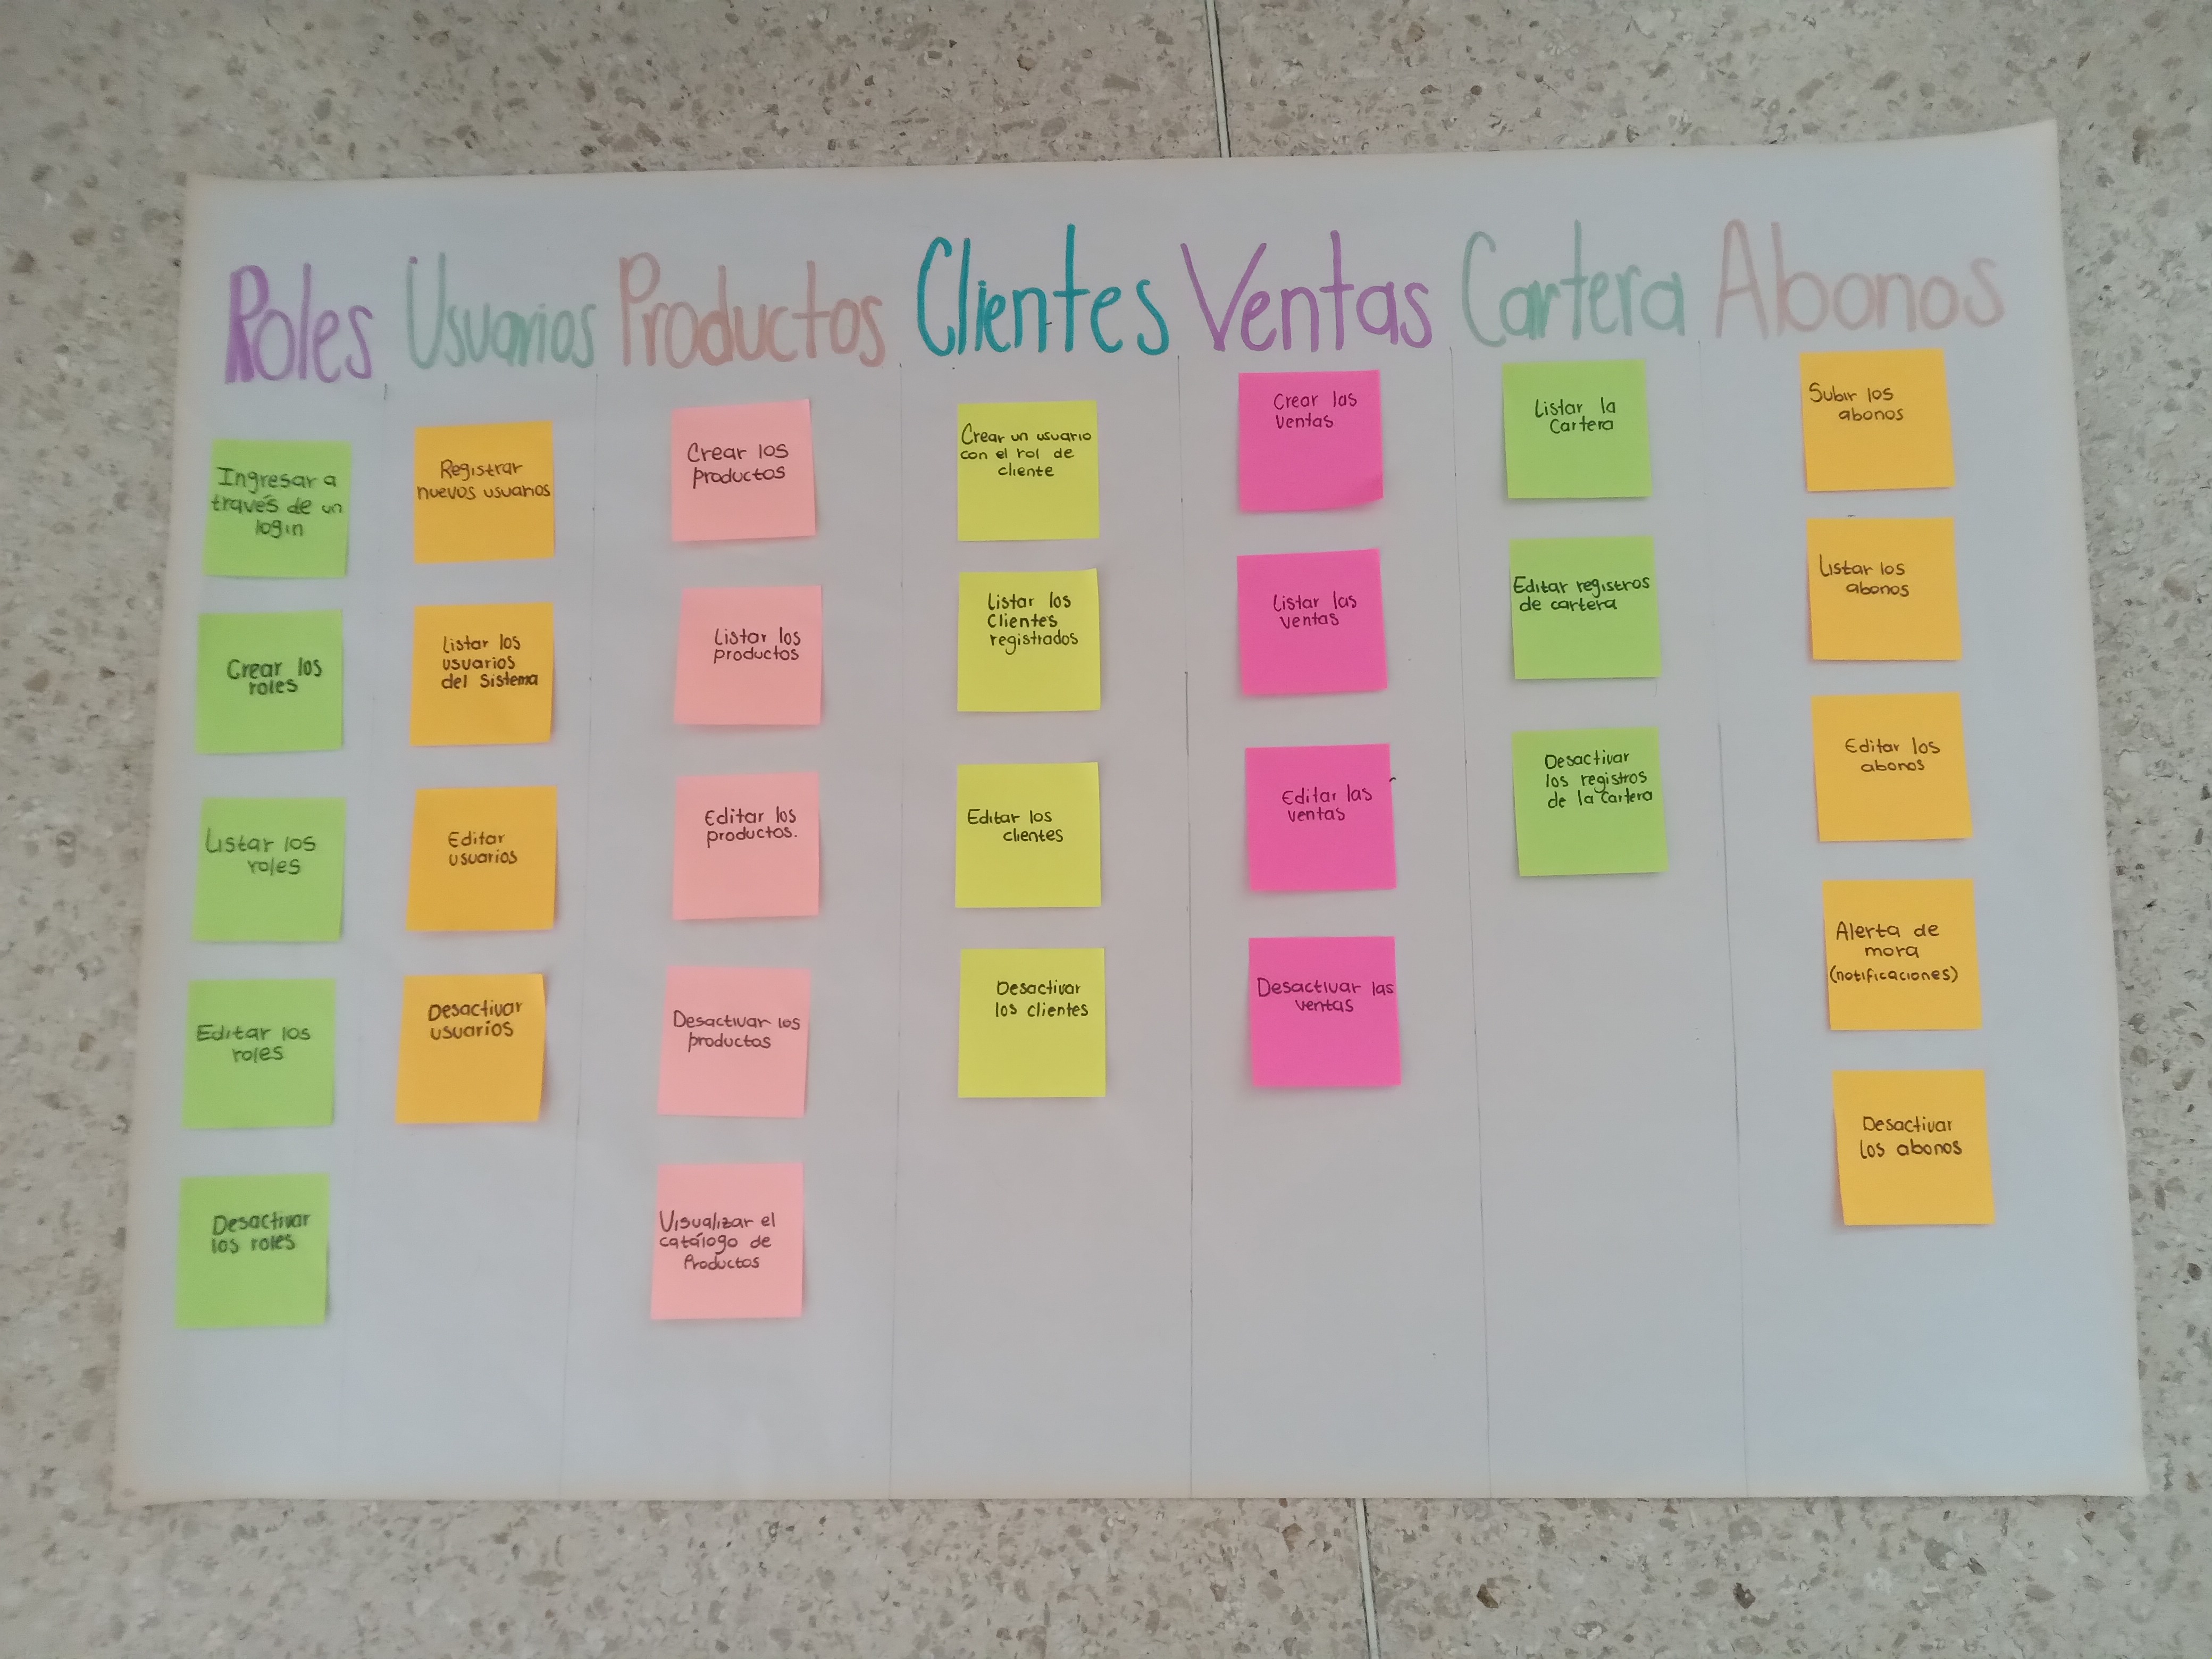 Roles Usuarios Productos Clientes Ventas Cartera Abonos
Ingresar a
través de un
login
Crear los
roles
Listar los
roles
Editar los
roles
Desactivar
los roles
Registrar
nuevos usuarios
Listar los
usuarios
del Sistema
Editar
usuarios
Desactivar
usuarios
Crear los
productos
Listar los
productos
Editar los
productos.
Desactivar los
productos
Visualizar el
catálogo de
Productos
Crear un usuario
con el rol de
cliente
Listar los
Clientes
registrados
Editar los
clientes
Desactivar
los clientes
Crear las
ventas
Listar las
ventas
Editar las
ventas
Desactivar las
ventas
Listar la
Cartera
Editar registros
de cartera
Desactivar
los registros
de la Cartera
Subir los
abonos
Listar los
abonos
Editar los
abonos
Alerta de
mora
(notificaciones)
Desactivar
los abonos